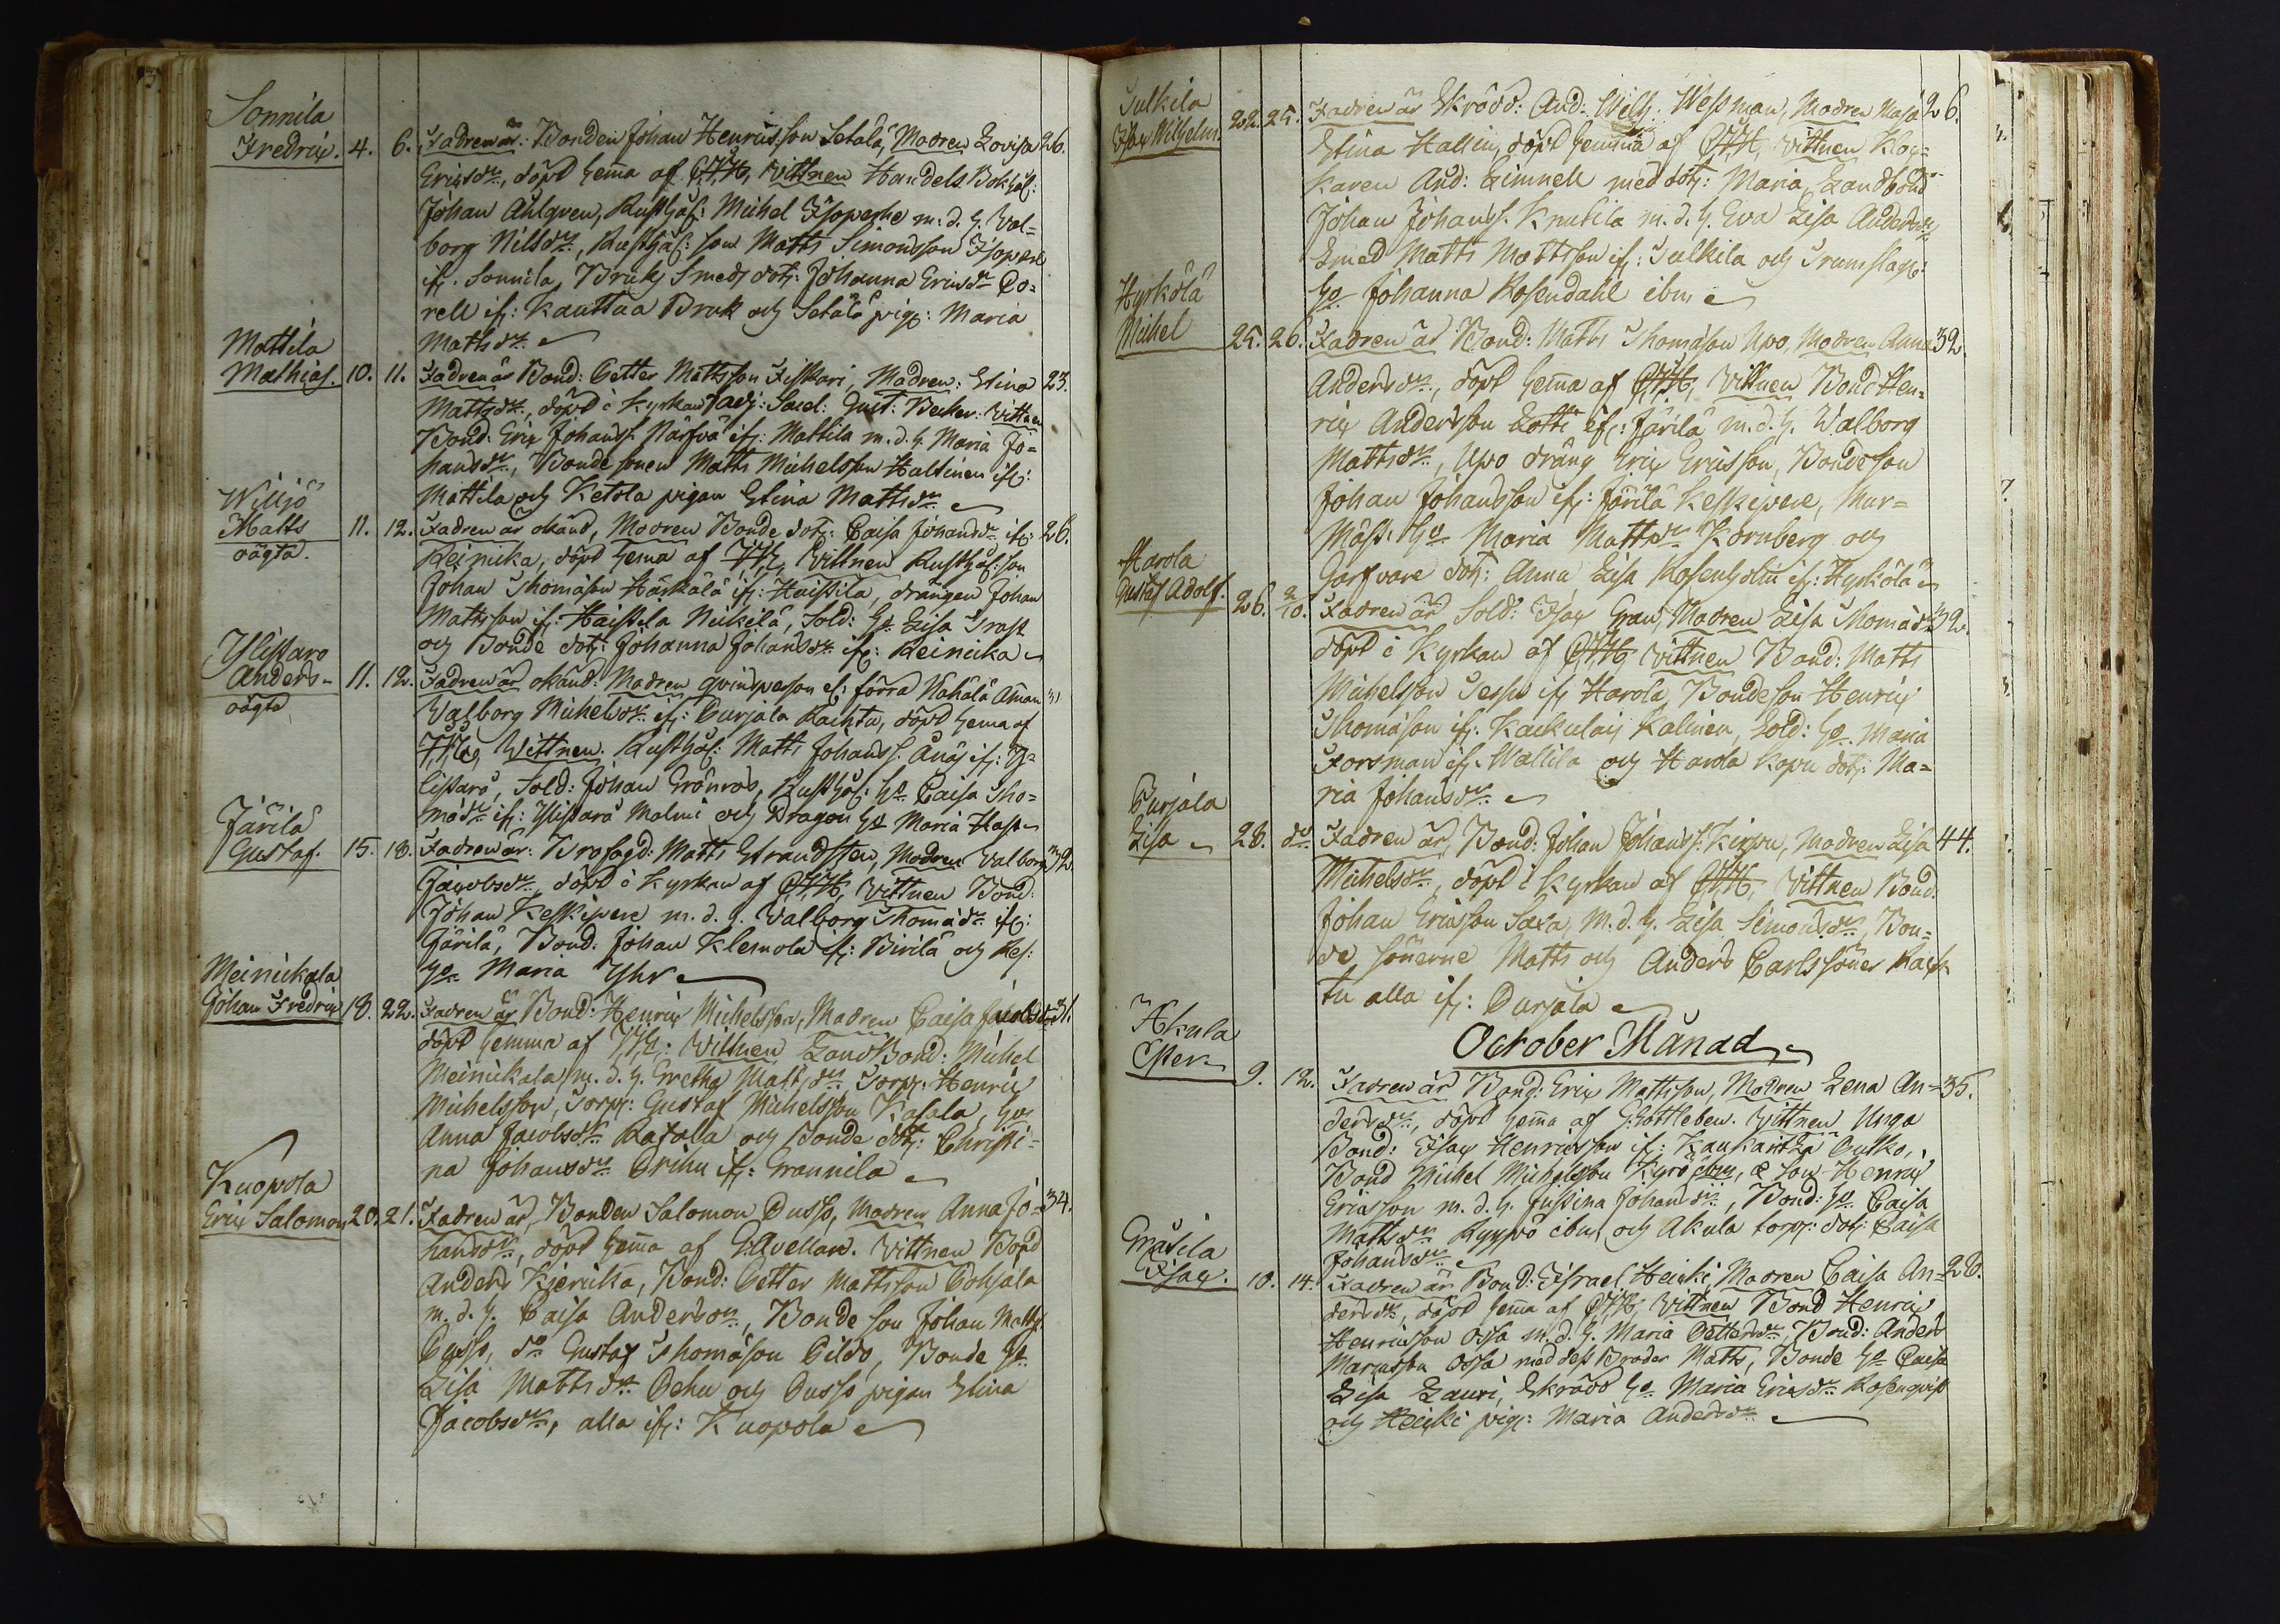 Sonnila
Fredric. 4. 6. Fadren är: Bonden Johan Henricsson Setälä, Modren Lovisa 26.
Ericsdr, döpt hema af, Vittnen Handels Bokhål:
Johan Ahlgren, Rusthål: Michel Isopere m. d. h. Val=
borg Nilsdr, Rusthål: son Matts Simonsson Isopere
ifr. Sonnila, Bruks Smeds dotr: Johanna Ericsdr Bo=
rell ifr: Kauttua Bruk och Setälä pigr: Maria
Mattsdr.
Mattila
Mathias. 10. 11. Fadren är Bond: Petter Mattsson Fiskari, Modren: Stina 23.
Mattsdr, döpt i Kyrkan adj: Sacel: Gust: Becker. Vittnen
Bond: Eric Johanss. Närfvä ifr: Mattila m. d. h. Maria Jo=
hansdr, Bonde sonen Matts Michelsson Haltinen ifr:
Mattila och Ketola pigan Stina Mattsdr
Willjo
Matts 11. 12. Fadren är okänd, Modren Bonde dotr: Caisa Johansdr ifr: 26.
oägta. Reinicka, döpt hema af Vittnen Rusthål: son
Johan Thomasson Härkälä ifr: Haistila, drängen Johan
Mattsson ifr: Haistila Nickilä, Sold: ho Lisa Trast
och Bonde dotr: Johanna Johansdr ifr: Reinicka
Ylistaro
Anders 11. 12. Fadren är okänd: Modren qvinsperson ef: förra
oägta Valborg Michelsdr ifr: Purjala Rachtu, döpt hema af
Wittnen. Rusthål: Matts Johanss. ifr: Y=
listaro, Sold: Johan Grönros, Rusthål: ho Caisa Tho=
madr ifr: Ylistaro Malmi och Dragon ho Maria Hast
Järilä
Gustaf. 15. 18. Fadren är: Brofogd: Matts Strandsten, Modren Valborg 32.
Jacobsdr, döpt i Kyrkan af Vittnen Bond:
Johan Keskipere m. d. h. Valborg Thomadr ifr:
Järilä, Bond: Johan Klemola ifr: Birilä och
ho Maria
Meinickala
Johan Fredric 18. 22. Fadren är Bond: Henric Michelsson, Modren Caisa Jacobsdr 31.
döpt hemma af Vittnen Landbond: Michel
Meinickala m. d. h. Gretha Mattsdr Torpr: Henric
Michelsson, Torpr: Gustaf Michelsson Kasala, ho
Anna Jacobsdr Rasalla och Bonde dotr: Christi=
na Johansdr Prihu ifr: Grannila
Kuopola
Eric Salomon 20. 21. Fadren är Bonden Salomon Pusso, Modren Anna Jo= 34.
hansdr, döpt hema af G. Avellan. Vittnen Bond
Anders Kjericka, Bond: Petter Mattsson Pohjala
m. d. h. Caisa Andersdr, Bonde son Johan Matts.
Pusso, do Gustaf Thomasson Pildo, Bonde ho
Lisa Mattsdr Ochu och Pusso pigan Stina
Jacobsdr, alla ifr: Kuopola
Tulkila
Isac Wilhelm. 22. 25. Fadren är Skrädd: And: Wilh: Wessman, Modren Maja 26.
Stina Hallin, döpt hemma af Vittnen Kloc=
karen And: Limnell med dotr: Maria, Landbond
Johan Johanss. Knutila m. d. h. Eva Lisa Andersdr
Smed Matts Mattsson ifr: Tulkila och Trumslag:
ho Johanna Rosendahl ibm
Hyrkölä
Michel 25. 26. Fadren är Bond: Matts Thomasson Upo, Modren Anna 32.
Andersdr, döpt hema af Vittnen Bond Hen=
ric Andersson Lotti ifr: Järilä m. d. h. Walborg
Mattsdr, Upo dräng Eric Ericsson, Bondeson
Johan Johansson ifr: Järilä Keskipere, Mur=
mäst: ho Maria Mattsdr Kornberg och
Garfvare dotr: Anna Lisa Rosenholm ifr: Hyrkölä
Harola
Gustaf Adolf. 26. 2/10. Fadren är Sold: Isac Gran, Modren Lisa Thomasdr 32.
döpt i Kyrkan af Vittnen Bond: Matts
Michelsson Seppo ifr Harola, Bondeson Henric
Thomasson ifr: Kackulais Kalinen, Sold: ho Maria
Forsman ifr. Wallila och Harola Kopu dotr: Ma=
ria Johansdr
Purjala
Lisa 28. do Fadren är Bond: Johan Johanss. Kirppu, Modren Lisa 44.
Michelsdr, döpt i Kyrkan af Vittnen Bond.
Johan Ericsson Saxa, m. d. h. Lisa Simonsdr, Bon=
de sönerne Matts och Anders Carls söner Rach
tu alla ifr: Purjala
October Månad
Akula
Ester 9. 12. Fadren är Bond: Eric Mattsson, Modren Lena An= 35.
dersdr, döpt hema af G. Gottleben. Vittnen Unga
Bond: Isac Henricsson ifr: Kaukaritza Outko,
Bond Michel Michelsson Kyrö ibm, & son Henric
Ericsson m. d. h. Justina Johansdr, Bond: ho Caisa
Mattsdr Ryypö ibm och Akula torpr: dotr: Caisa
Johansdr
Gräsila
Isac. 10. 14. Fadren är Bond: Israel Heicki, Modren Caisa An= 28.
dersdr, döpt hema af Vittnen Bond Henric
Henricsson Ossa m. d. h. Maria Pettersdr, Bond: Anders
Marcusson Ossa med dess Broder Matts, Bonde ho Caisa
Lisa Lauri, Skrädd ho Maria Ericsdr Rosenqvist
och Heicki pigr: Maria Andersdr